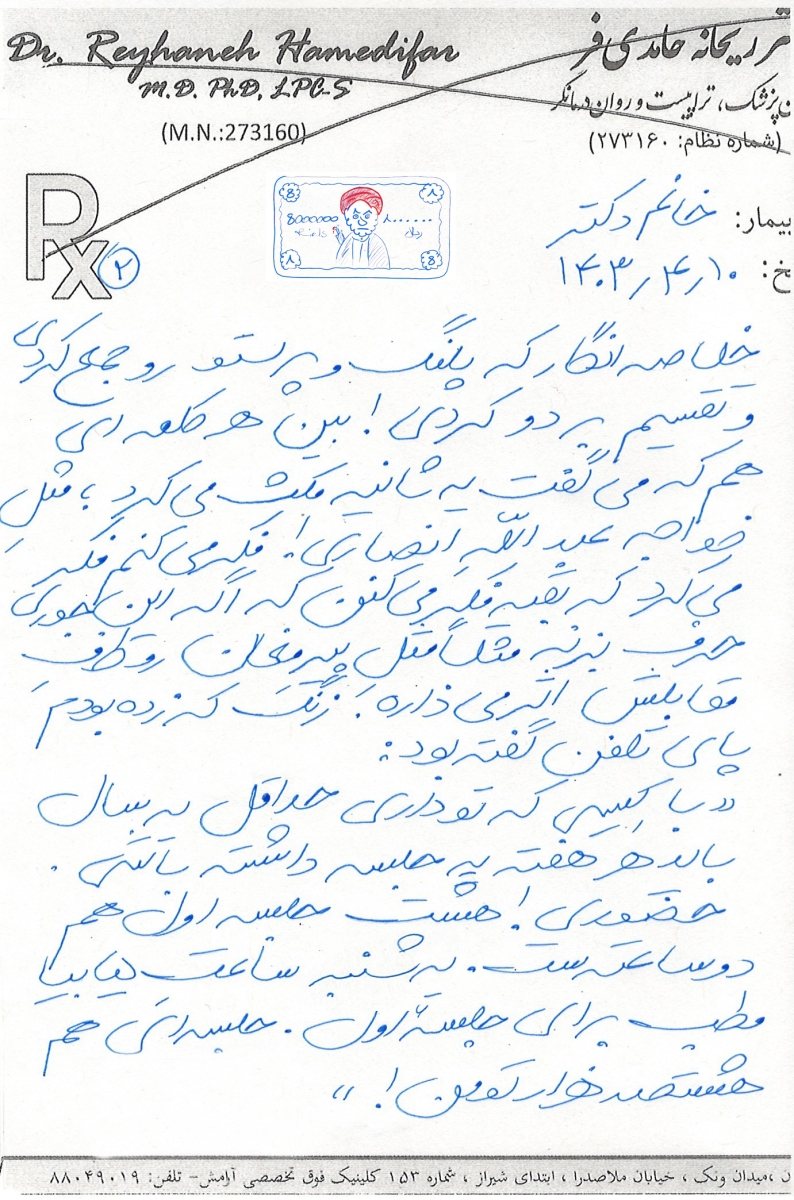 Dr. Reyhaneh Hamedifar
M.D. PhD, LPC-S
(M.N.:273160)
تر ریحانه حامدی فر
ن پزشک، تراپیست و روان درمانگر
(شماره نظام: ۲۷۳۱۶۰)
Rx
۲
8 ۸
8000000 ۸۰۰۰۰۰۰
ریال
۸ 8
بیمار: خانم دکتر
خ: ۱۰ر۴ر۱۴۰۳
خلاصه انگار که پلنگ و پرستو رو جمع کردی
و تقسیم بر دو کردی! بین هر کلمه ای
هم که می گفت یه ثانیه مکث می کرد؛ مثلِ
خواجه عبد اللّهِ انصاری! فکر می کنم فکر
می کرد که بقیه فکر می کنن که اگه این جوری
حرف بزنه مثلاً مثل پیر مغان رو طرفِ
مقابلش اثر می ذاره! زنگ که زده بودم
پای تلفن گفته بود:
«با کیسی که تو داری حداقل یه سال
باید هر هفته یه جلسه داشته باشی.
حضوری! هشت جلسه اول هم
دو ساعته ست. یه شنبه ساعت بیا
مطب برای جلسهٔ اول. جلسه ای هم
هشتصد هزار تومن!»
ن ،میدان ونک ، خیابان ملاصدرا ، ابتدای شیراز ، شماره ۱۵۳ کلینیک فوق تخصصی آرامش- تلفن: ۸۸۰۴۹۰۱۹